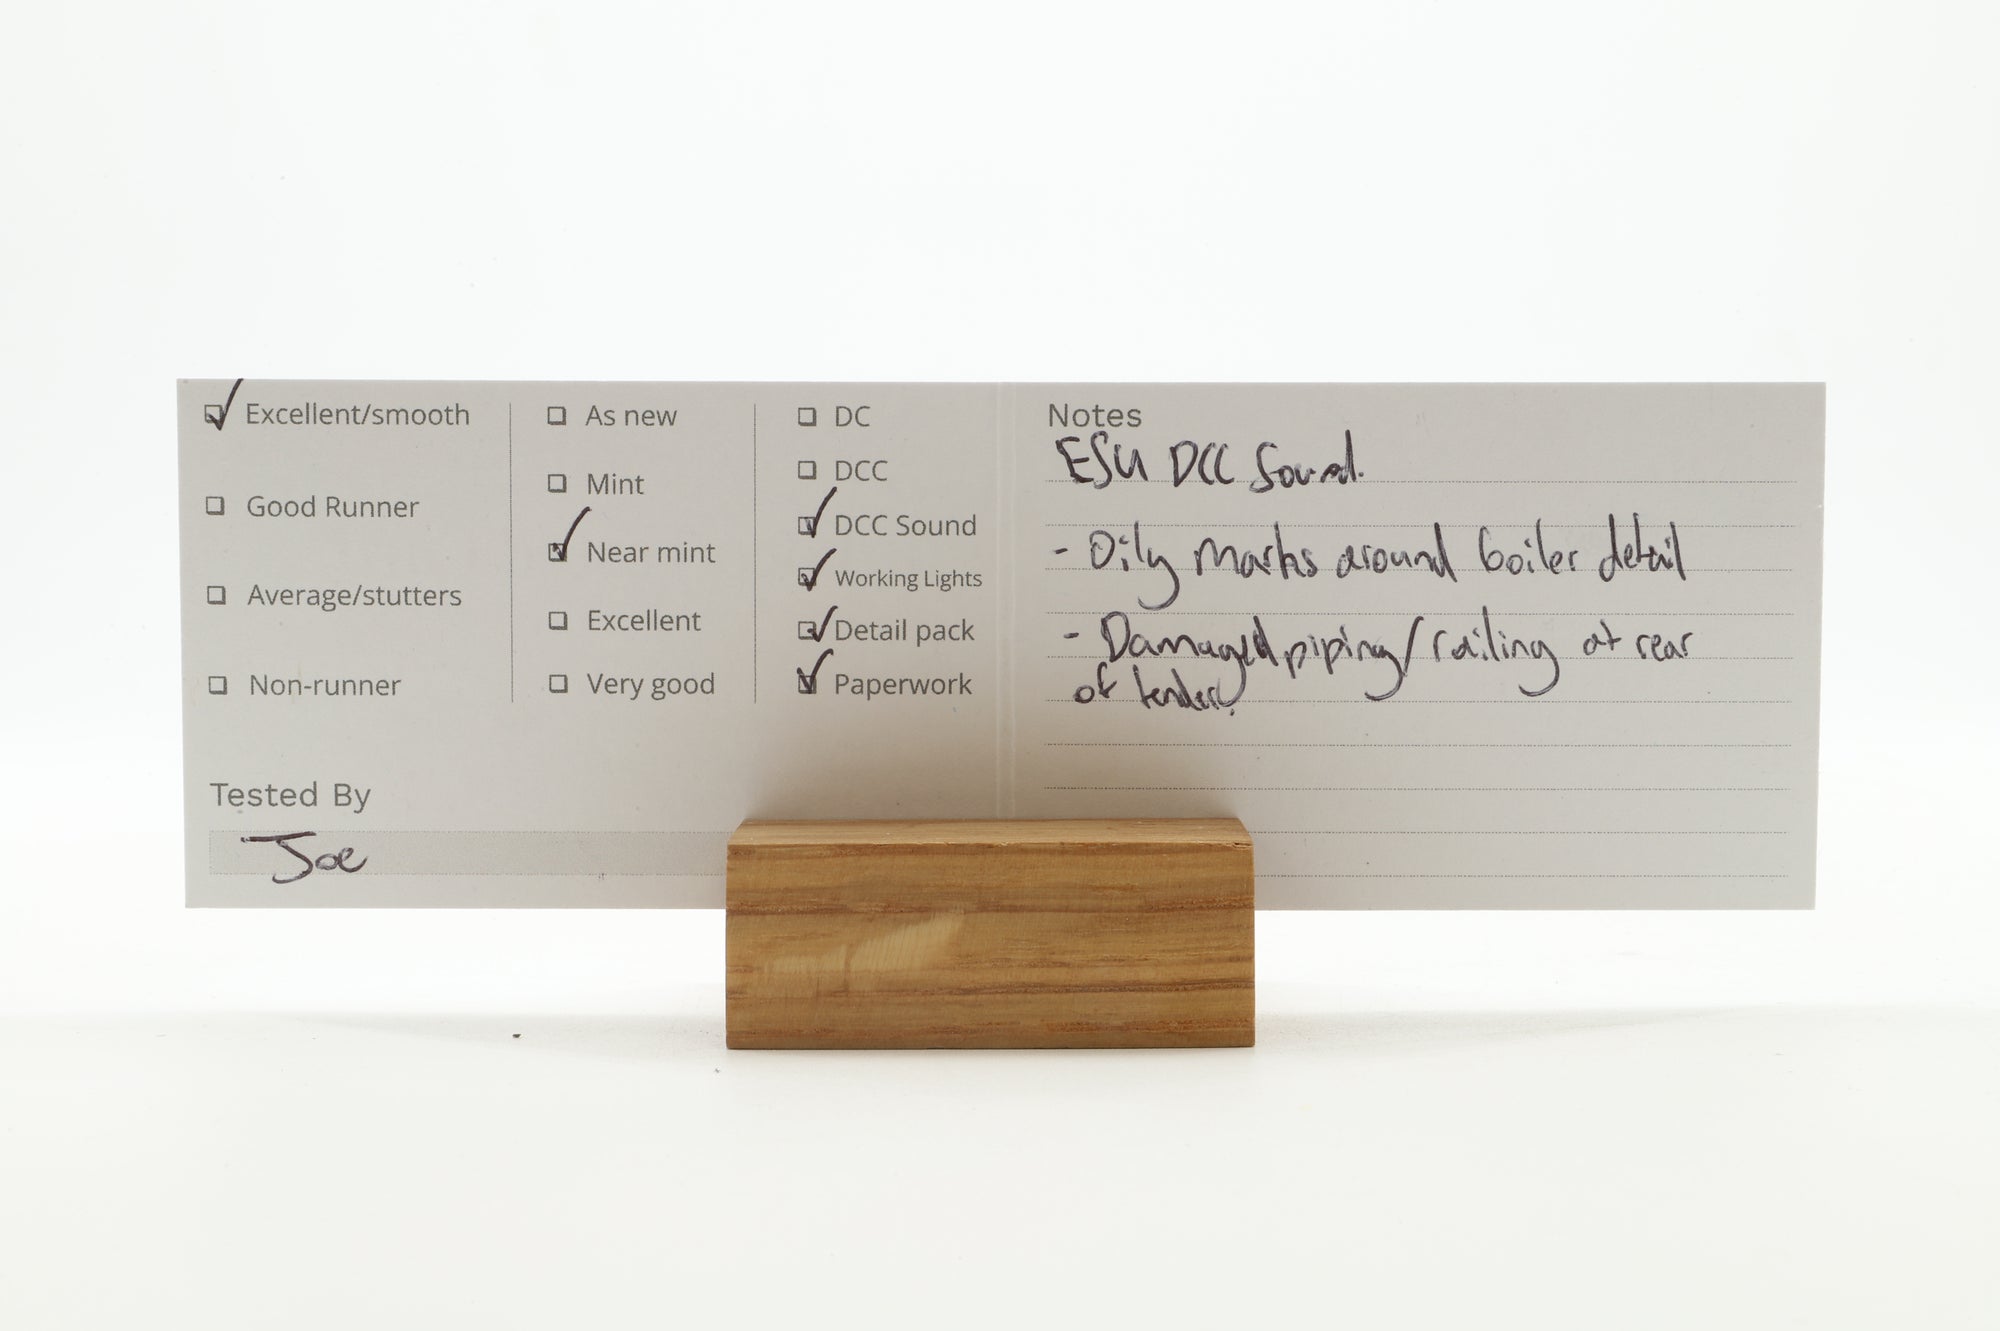 Excellent/smooth
Good Runner
Average/stutters
Non-runner
As new
Mint
Near mint
Excellent
Very good
DC
DCC
DCC Sound
Working Lights
Detail pack
Paperwork
Tested By
Joe
Notes
ESU DCC Sound.
- Oily marks around boiler detail
- Damaged piping/railing at rear
of tender.